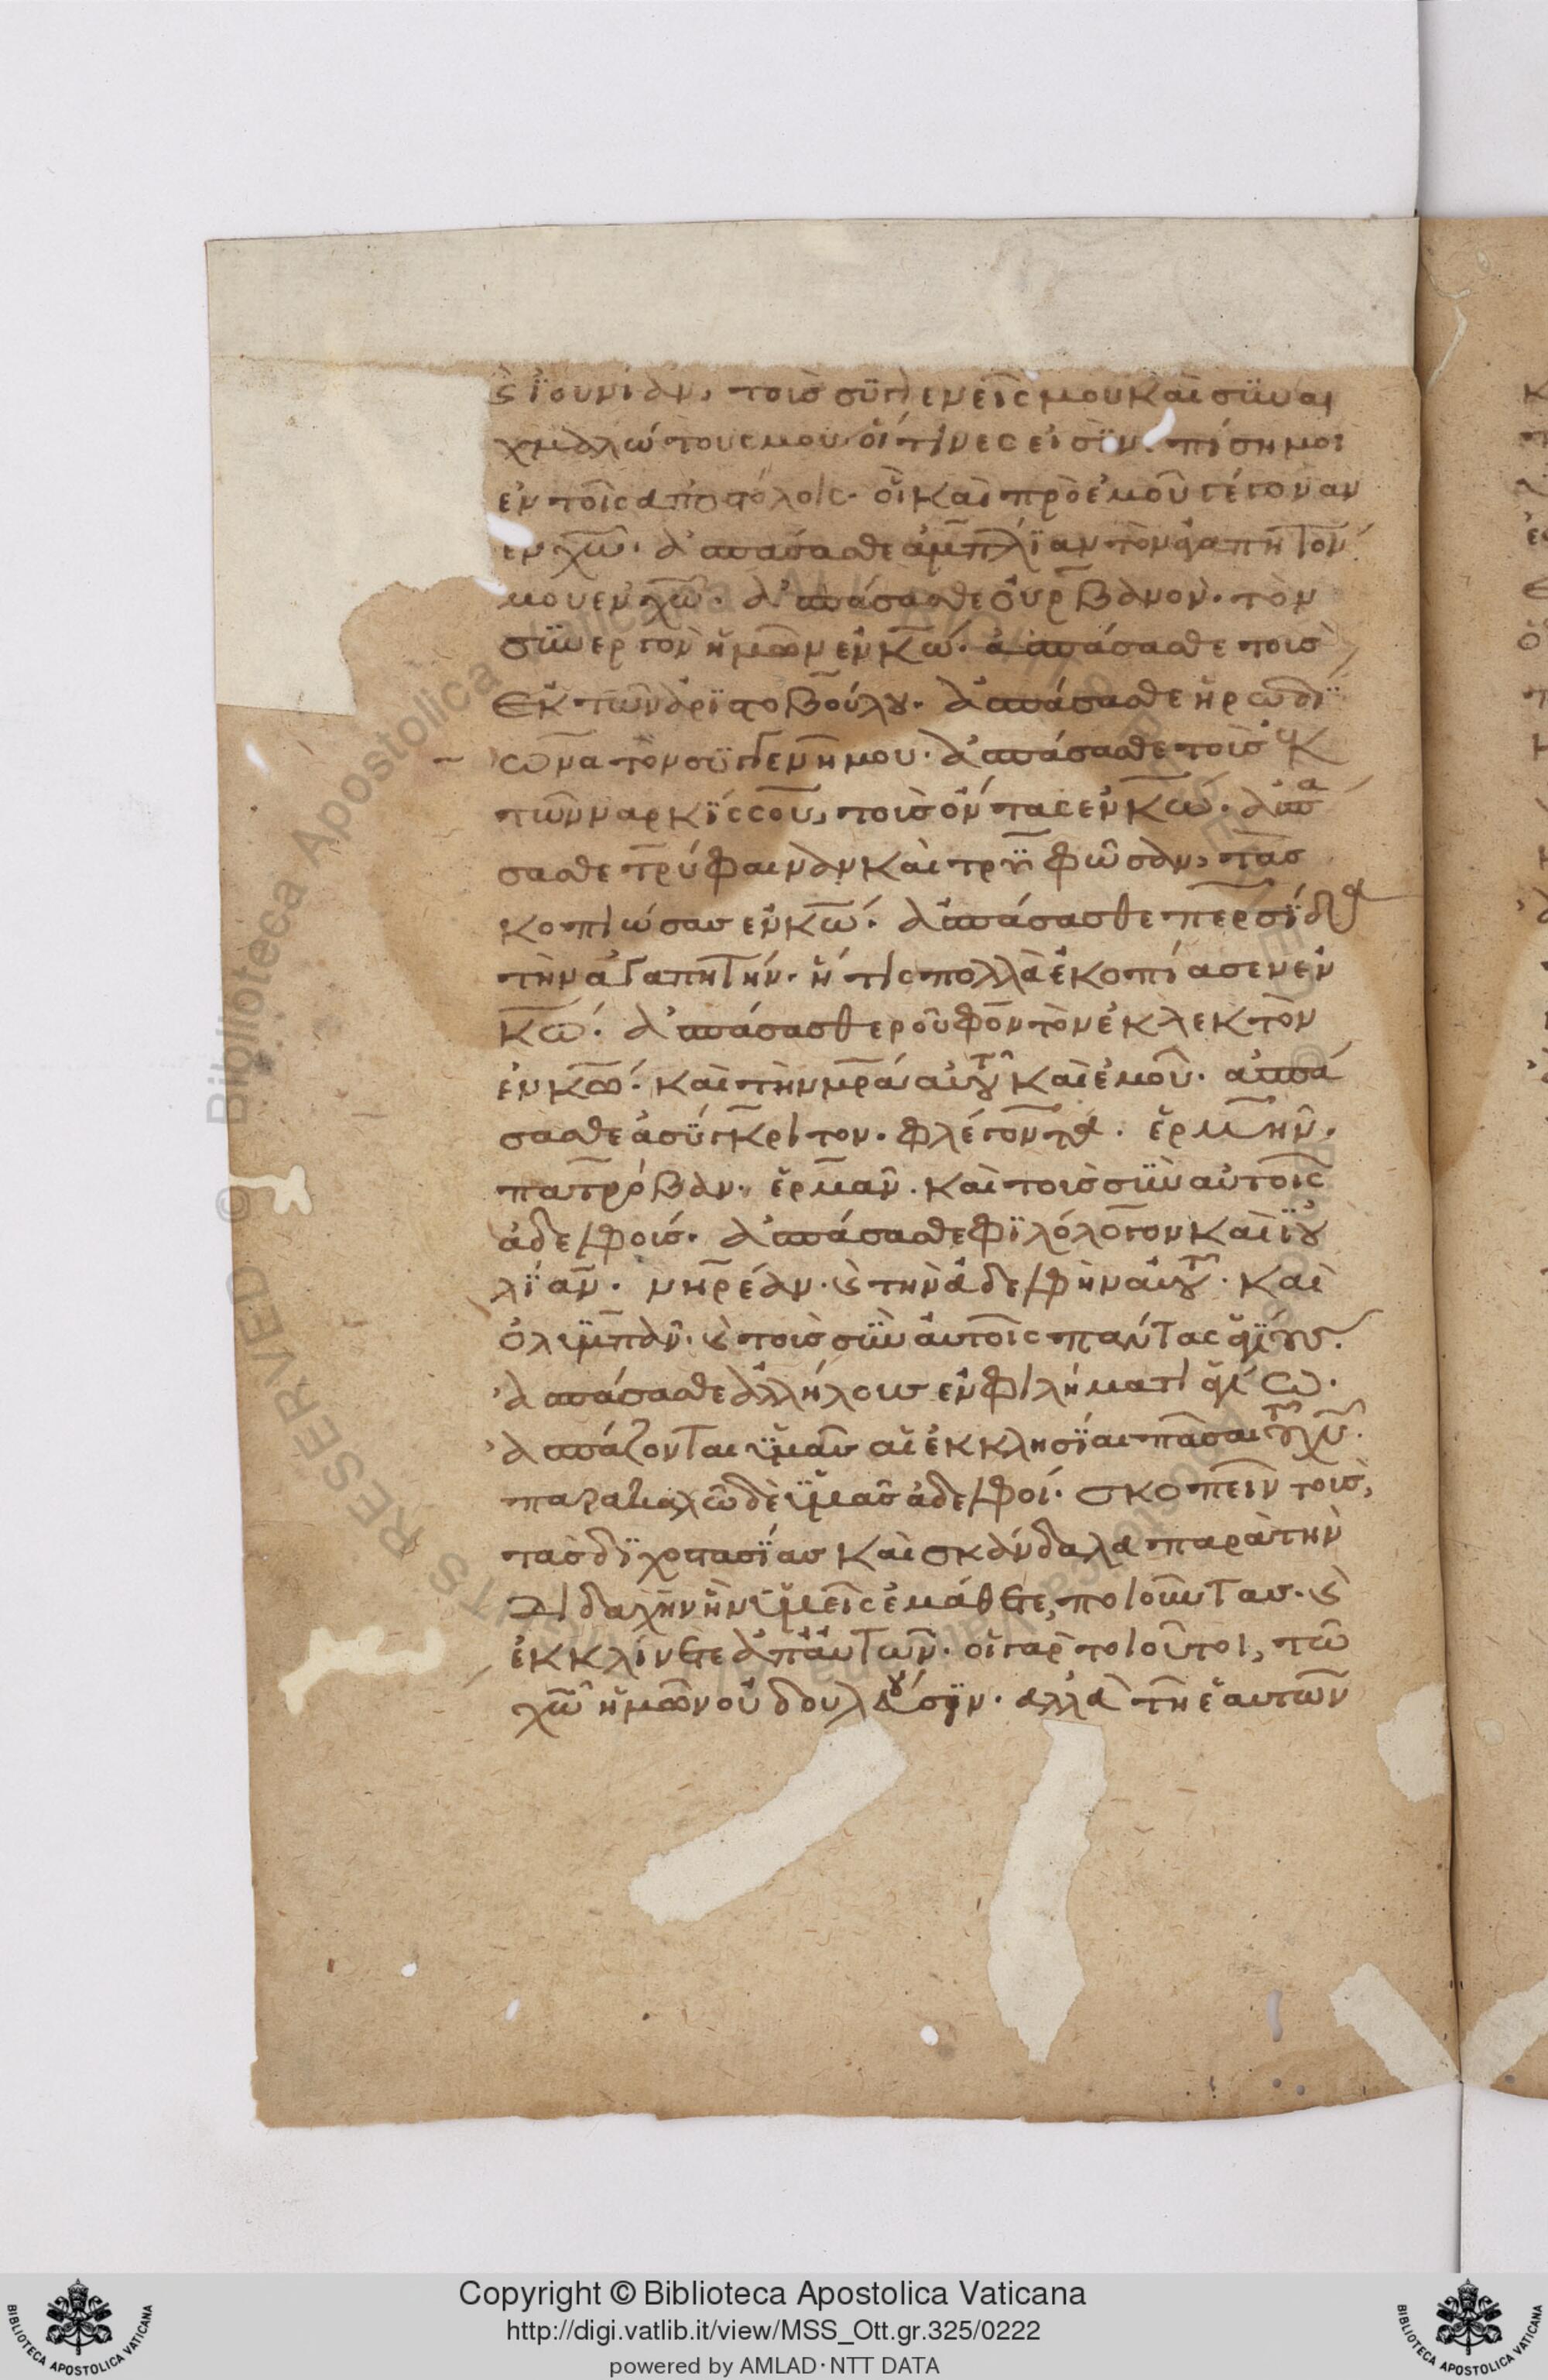 ς ἰουνίαν, τοὺσ συγγενεῖς μου καὶ συναι
χμαλώτους μου οἵτινες εἰσϊν. πίσημοι
ἐν τοῖς ἀποστόλοις· οἳ καὶ πρὸ ἐμοῦ γέγοναν
ἐν χω̅. ἀσπάσασθε ἀμπλίαν τὸν ἀγαπητόν
μου εν χω̅. ἀσπάσασθε ὀυρβανὸν. τὸν
σϋνεργὸν ἡμῶν ἐν κω̅. ἀσπάσασθε τοὺσ
ἐκ τῶν ἀρϊστοβούλου. ἀσπάσασθε ἡρωδϊ
ωνα τὸν σϋγγενῆ μου. ἀσπάσασθε τοὺσ ἐκ
τῶν ναρκϊσσου, τοὺσ ὄντας ἐν κω̅. ἀσπα
σασθε τρύφαιναν καὶ τρϋφῶσαν, τὰσ
κοπιώσασ ἐν κω̅. ἀσπάσασθε περσϊδα
τὴν ἀγαπητήν. ἥτις πολλὰ ἐκοπίασεν ἐν
κω̅. ἀσπάσασθε ροῦφον τὸν ἐκλεκτὸν
ἐν κω̅. καὶ τὴν μρ̅α αὐτοῦ καὶ ἐμοῦ. ἀσπά
σασθε ἀσύγκριτον. φλέγοντα. ἑρμῆν.
πατρόβαν. ἑρμᾶν. καὶ τοὺσ σϋν αὐτοῖς
ἀδελφούσ. ἀσπάσασθε φϊλόλογον καὶ ϊου
λίαν. νηρέαν. ς τὴν ἀδελφὴν αὐτοῦ. καὶ
ὀλυμπᾶν. ς τοὺσ σϋν ἀυτοῖς πάντας ἁγίουσ.
ἀσπάσασθε ἀλλήλουσ ἐν φιλήματι ἁγίω.
ἀσπάζονται ὑμᾶσ αἱ ἐκκλησίαι πᾶσαι τοῦ χυ̅.
παρακαλῶ δὲ ὑμᾶσ ἀδελφοί. σκοπεῖν τοὺσ,
τὰσ διχοστασίασ καὶ σκάνδαλα παρὰ τὴν
διδαχὴν ἣν ὑμεῖς ἐμάθετε, ποιοῦντασ. ς
ἐκκλίνετε ἀπ' ἀυτῶν. οἱ γὰρ τοιοῦτοι, τῶ
χω̅ ἡμῶν οὐ δουλεύουσϊν. ἀλλὰ τῆ ἑαυτῶν
Copyright © Biblioteca Apostolica Vaticana
http://digi.vatlib.it/view/MSS_Ott.gr.325/0222
powered by AMLAD·NTT DATA